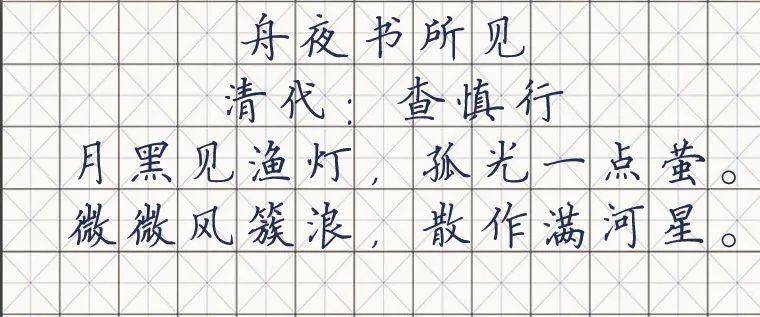 舟夜书所见
清代：查慎行
月黑见渔灯，孤光一点萤。
微微风簇浪，散作满河星。